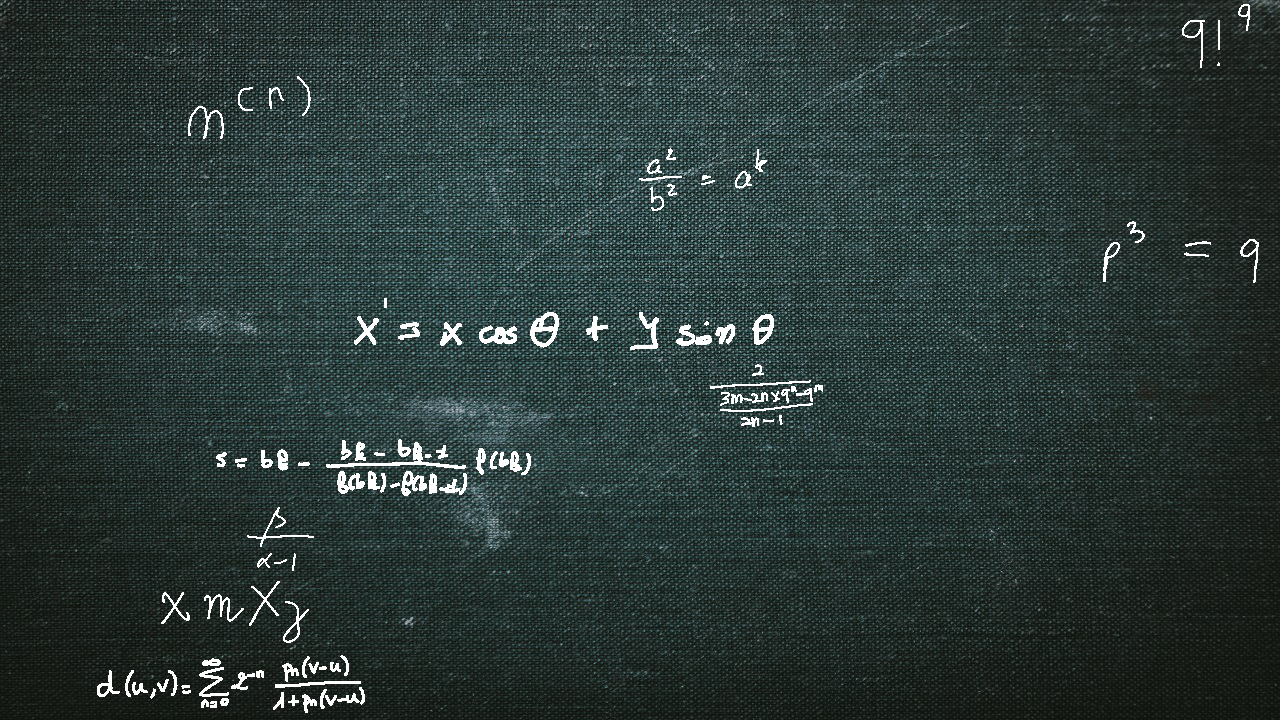 9!^9
m^(n)
a^2/b^2 = a^k
p^3 = 9
x' = x cos θ + y sin θ
2/((3m-2n×9^n-9^m)/(2n-1))
s = bk - (bk - bk-1)/(f(bk)-f(bk-1)) f(bk)
β/(α-1)
x m X z
d(u,v)=∑_{n=0}^{∞} 2^{-n} pn(v-u)/(1+pn(v-u))